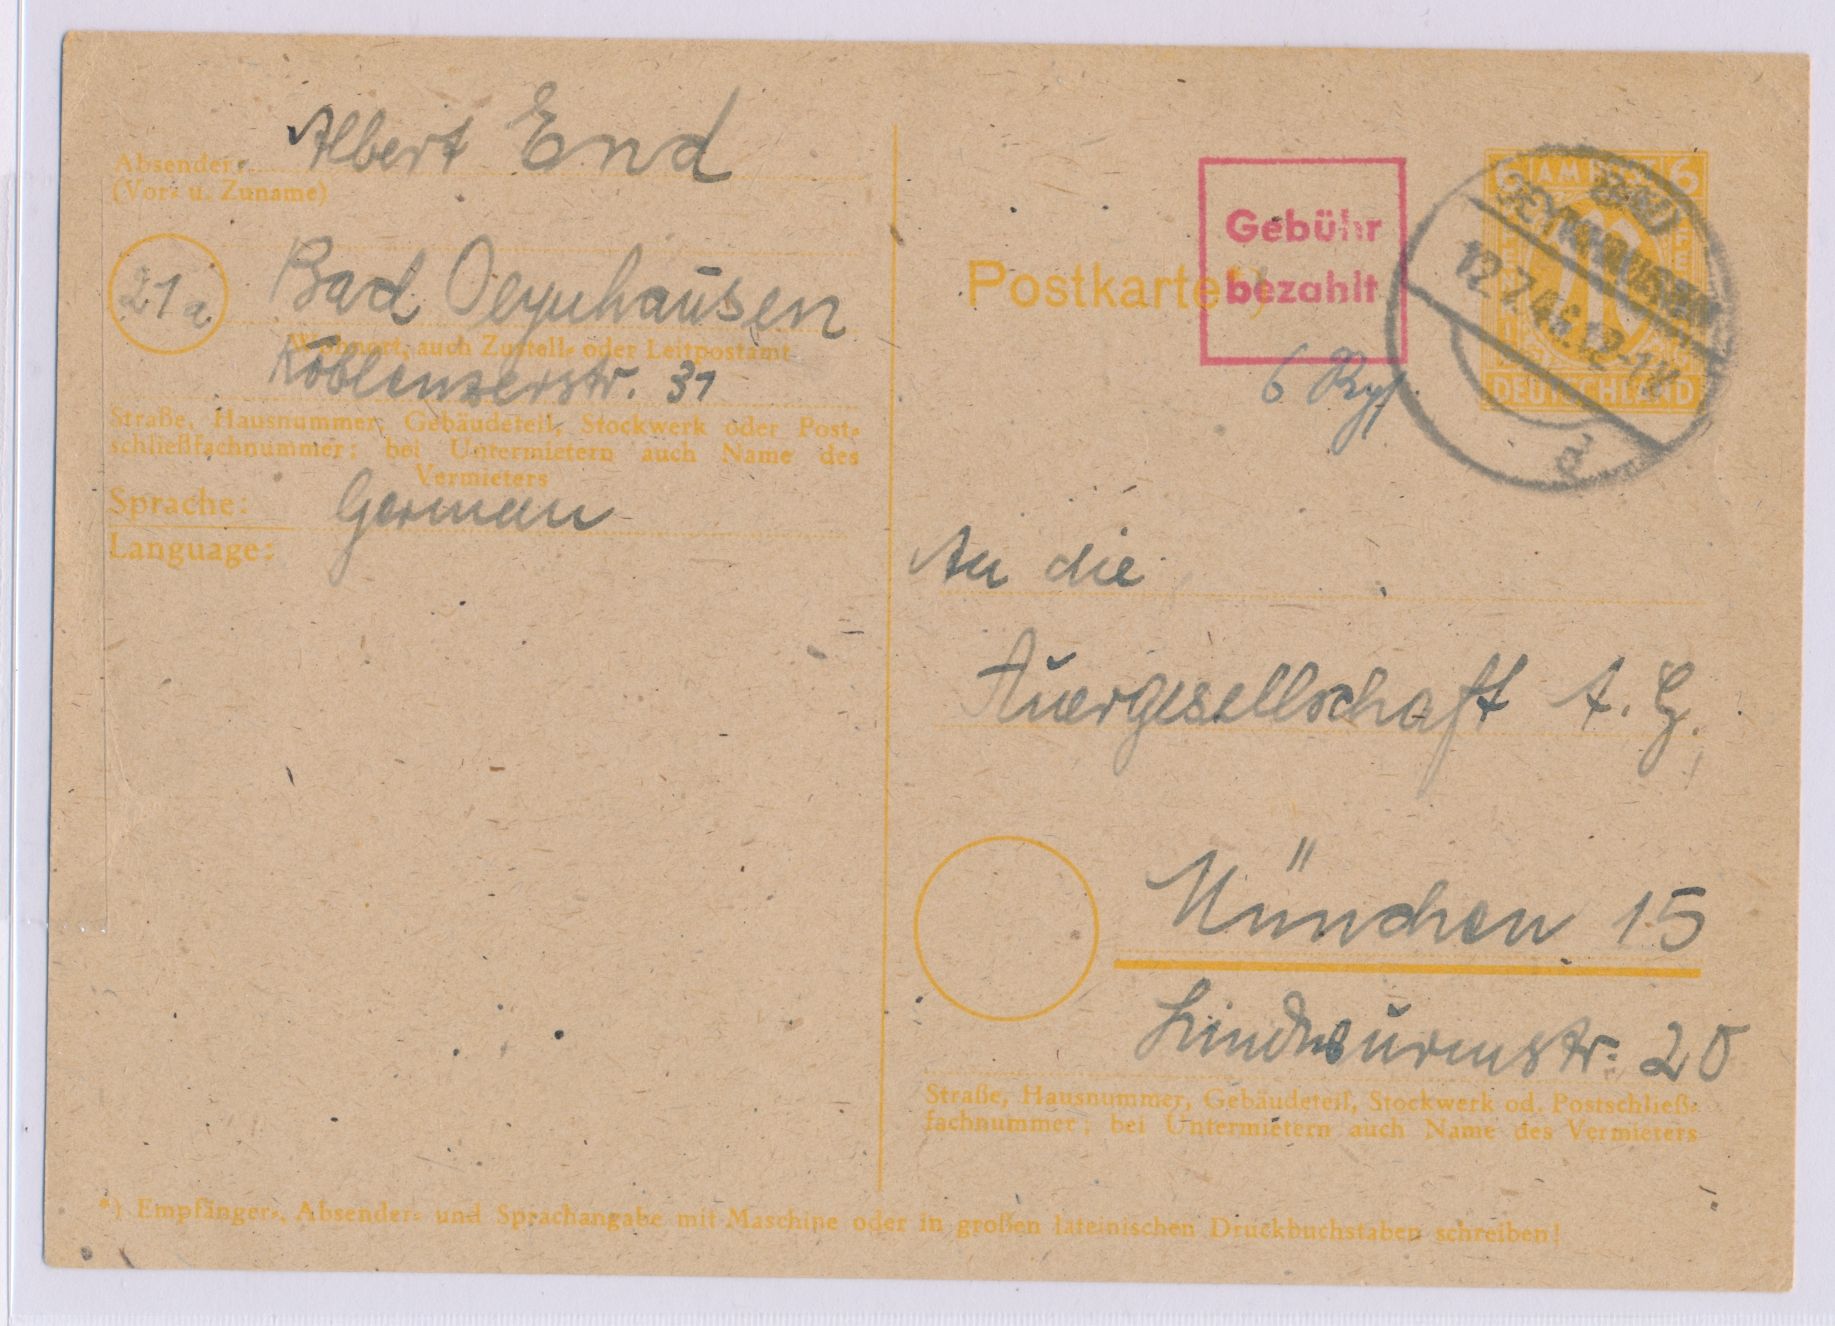 Absender:
Albert End
(Vor- u. Zuname)
21a
Bad Oeynhausen
Wohnort, auch Zustell- oder Leitpostamt
Koblenzerstr. 31
Straße, Hausnummer, Gebäudeteil, Stockwerk oder Post-
schließfachnummer; bei Untermietern auch Name des
Vermieters
Sprache:
German
Language:
Postkarte*)
Gebühr
bezahlt
6 Rpf
6 AM POST 6
DEUTSCHLAND
BAD
OEYNHAUSEN
12.7.46.12-1V
a
An die
Auergesellschaft A. G.
München 15
Lindwurmstr. 20
Straße, Hausnummer, Gebäudeteil, Stockwerk od. Postschließ-
fachnummer; bei Untermietern auch Name des Vermieters
*) Empfänger-, Absender- und Sprachangabe mit Maschine oder in großen lateinischen Druckbuchstaben schreiben!